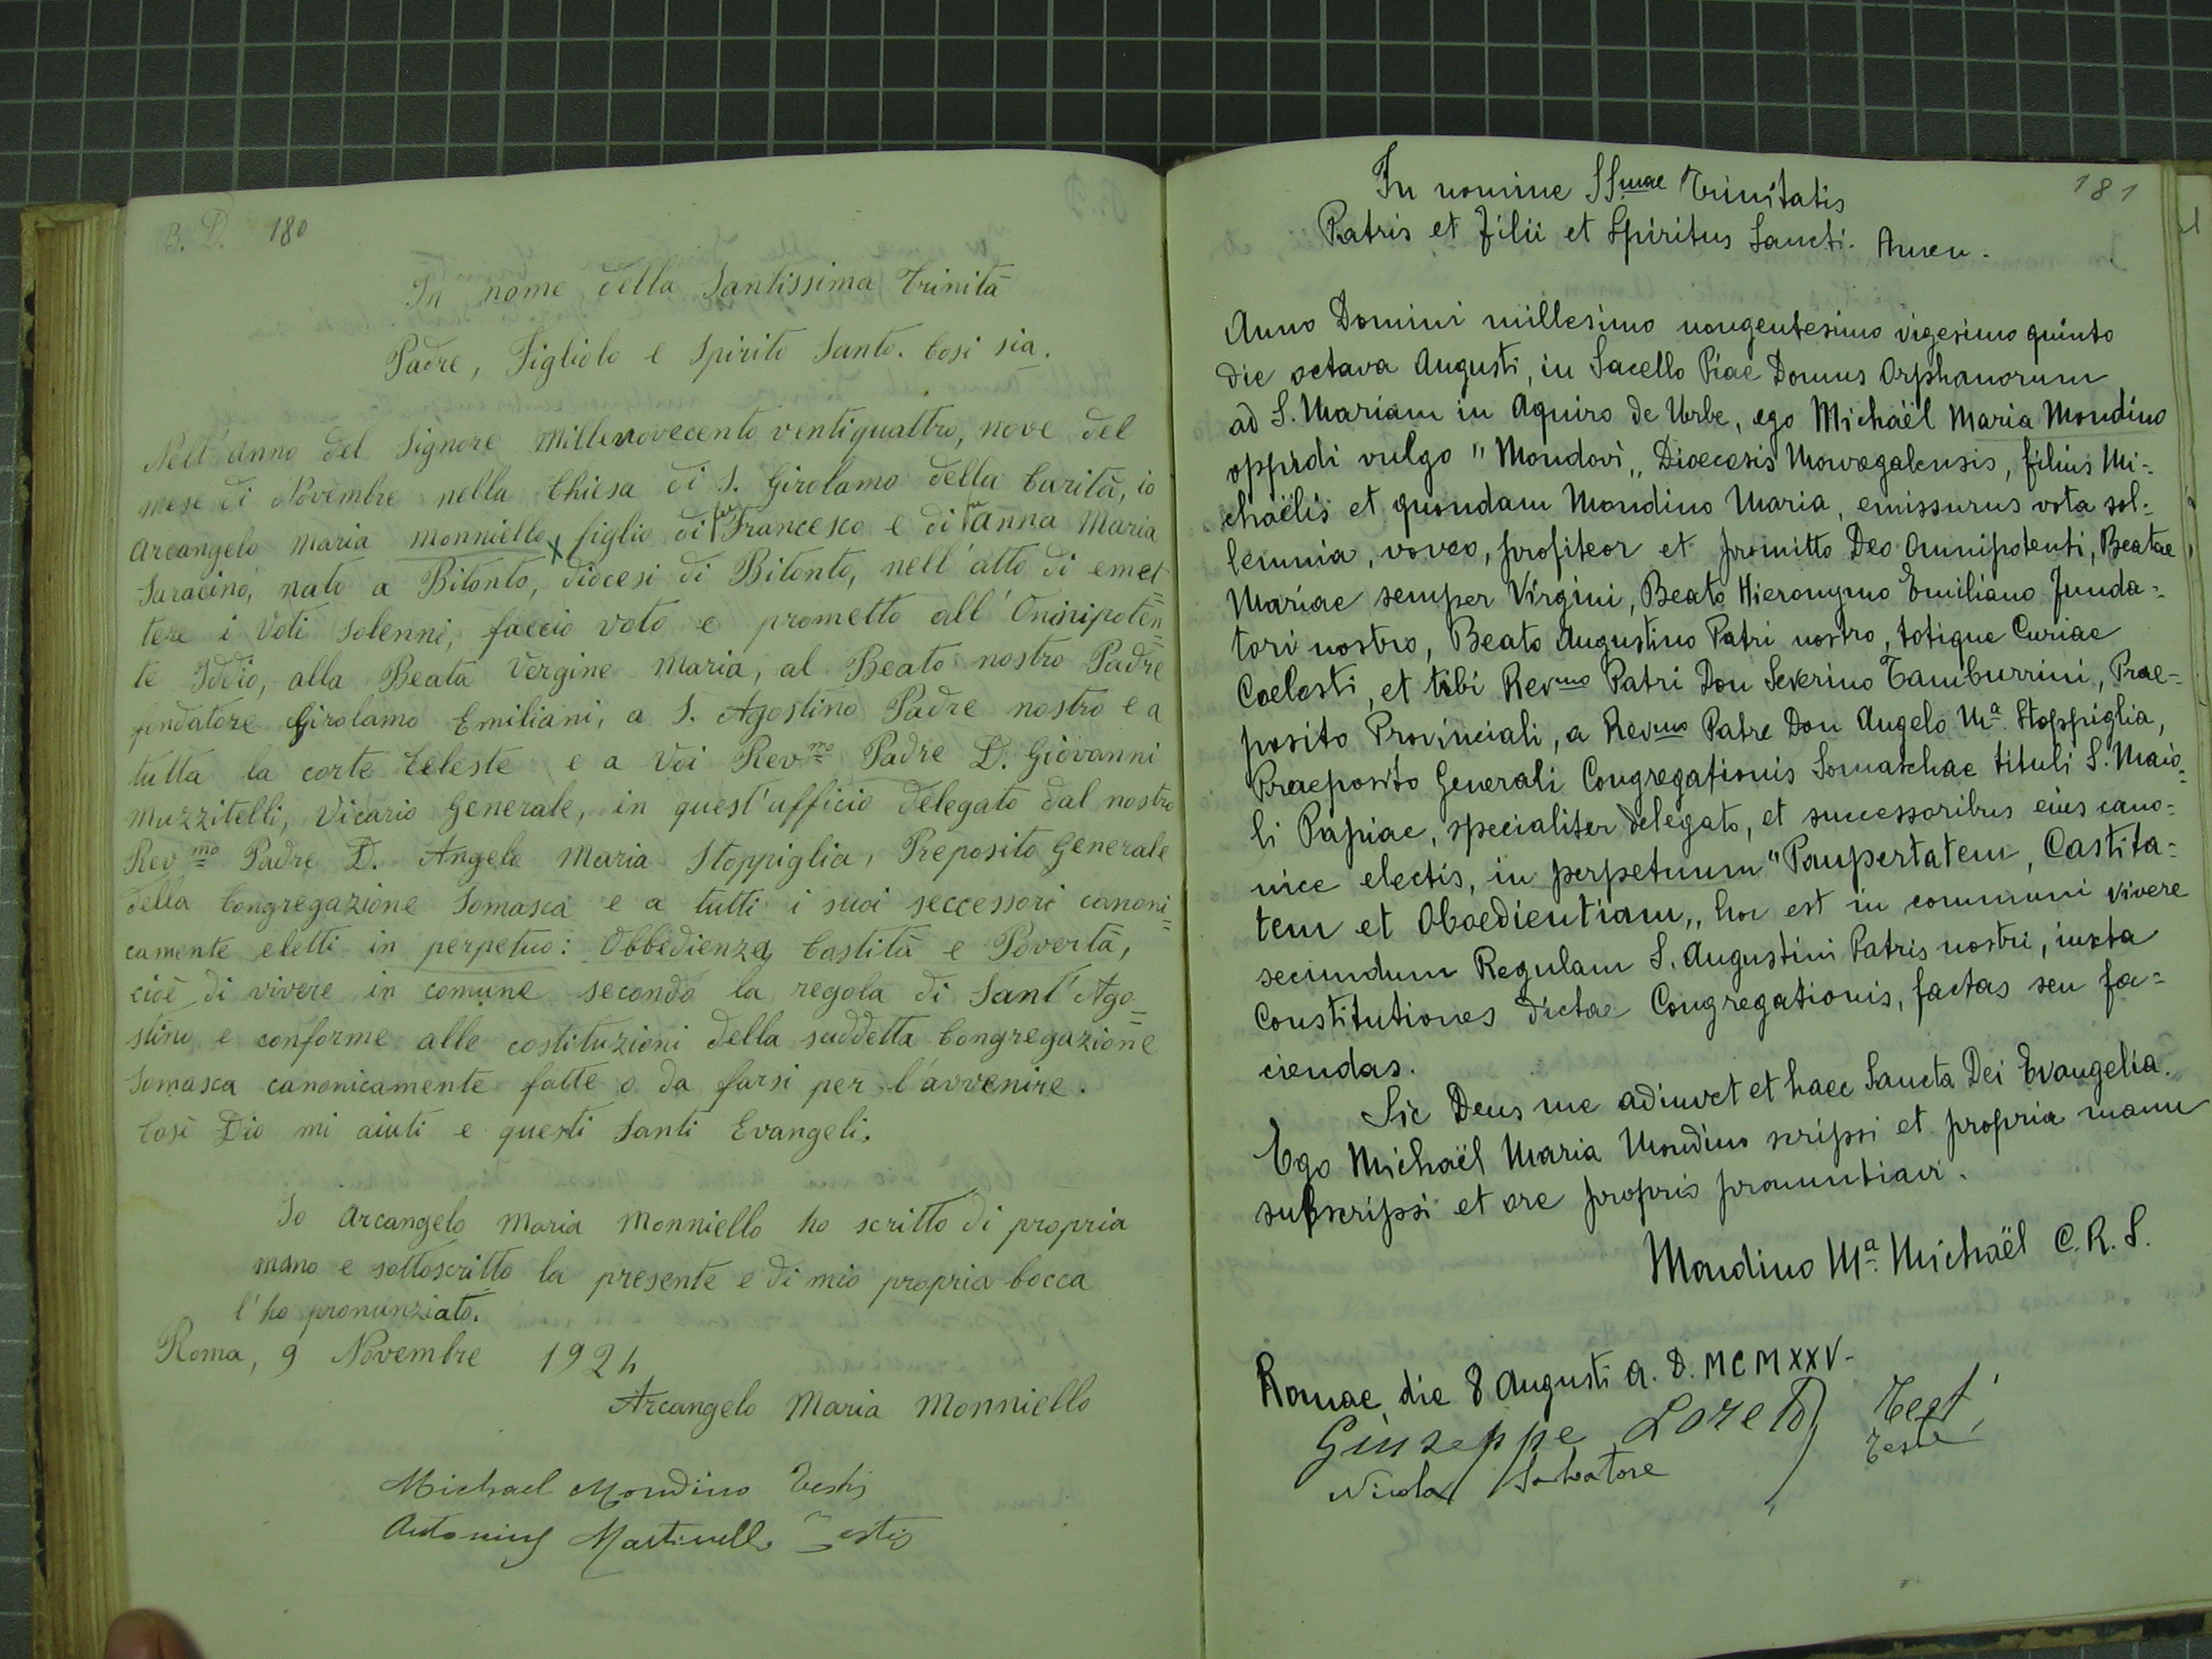 B. D. 180
In nome della Santissima Trinità
Padre, Figliolo e Spirito Santo. Così sia.
Nell'anno del Signore millenovecento ventiquattro, nove del
mese di Novembre nella Chiesa di S. Girolamo della Carità, io
Arcangelo Maria Monniello x figlio di fu Francesco e di fu Anna Maria
Saracino, nato a Bitonto, diocesi di Bitonto, nell'atto di emet=
tere i Voti solenni, faccio voto e prometto all'Onnipoten=
te Iddio, alla Beata Vergine Maria, al Beato nostro Padre
fondatore Girolamo Emiliani, a S. Agostino Padre nostro e a
tutta la corte Celeste e a Voi Revmo Padre D. Giovanni
Muzzitelli, Vicario Generale, in quest'ufficio delegato dal nostro
Revmo Padre D. Angelo Maria Stoppiglia, Preposito Generale
della Congregazione Somasca e a tutti i suoi seccessori canoni=
camente eletti in perpetuo: Obbedienza, Castità e Povertà,
cioè di vivere in comune secondo la regola di Sant'Ago=
stino e conforme alle costituzioni della suddetta Congregazione
Somasca canonicamente fatte o da farsi per l'avvenire.
Così Dio mi aiuti e questi Santi Evangeli.
Io Arcangelo Maria Monniello ho scritto di propria
mano e sottoscritto la presente e di mio propria bocca
l'ho pronunziato.
Roma, 9 Novembre 1924
Arcangelo Maria Monniello
Michael Mondino Testis
Antonius Martinelli Testis
181
In nomine SSmae Trinitatis
Patris et Filii et Spiritus Sancti. Amen.
Anno Domini millesimo nongentesimo vigesimo quinto
die octava Augusti, in Sacello Piae Domus Orphanorum
ad S. Mariam in Aquiro de Urbe, ego Michaël Maria Mondino
oppidi vulgo "Mondovì„ Dioecesis Monregalensis, filius Mi=
chaëlis et quondam Mondino Maria, emissurus vota sol=
lemnia, voveo, profiteor et promitto Deo Omnipotenti, Beatae
Mariae semper Virgini, Beato Hieronymo Emiliano funda=
tori nostro, Beato Augustino Patri nostro, totique Curiae
Coelesti, et tibi Revmo Patri Don Severino Tamburrini, Prae=
posito Provinciali, a Revmo Patre Don Angelo Mª Stoppiglia,
Praeposito Generali Congregationis Somaschae tituli S. Maio=
li Papiae, specialiter delegato, et successoribus eius cano=
nice electis, in perpetuum "Paupertatem, Castita=
tem et Oboedientiam„ hoc est in communi vivere
secundum Regulam S. Augustini Patris nostri, iuxta
Constitutiones dictae Congregationis, factas seu fa=
ciendas.
Sic Deus me adiuvet et haec Sancta Dei Evangelia.
Ego Michaël Maria Mondino scripsi et propria manu
subscripsi et ore proprio pronuntiavi.
Mondino Mª Michaël C. R. S.
Romae die 8 Augusti A. D. MCMXXV.
Giuseppe Loreto Test
Nicola Salvatore Teste